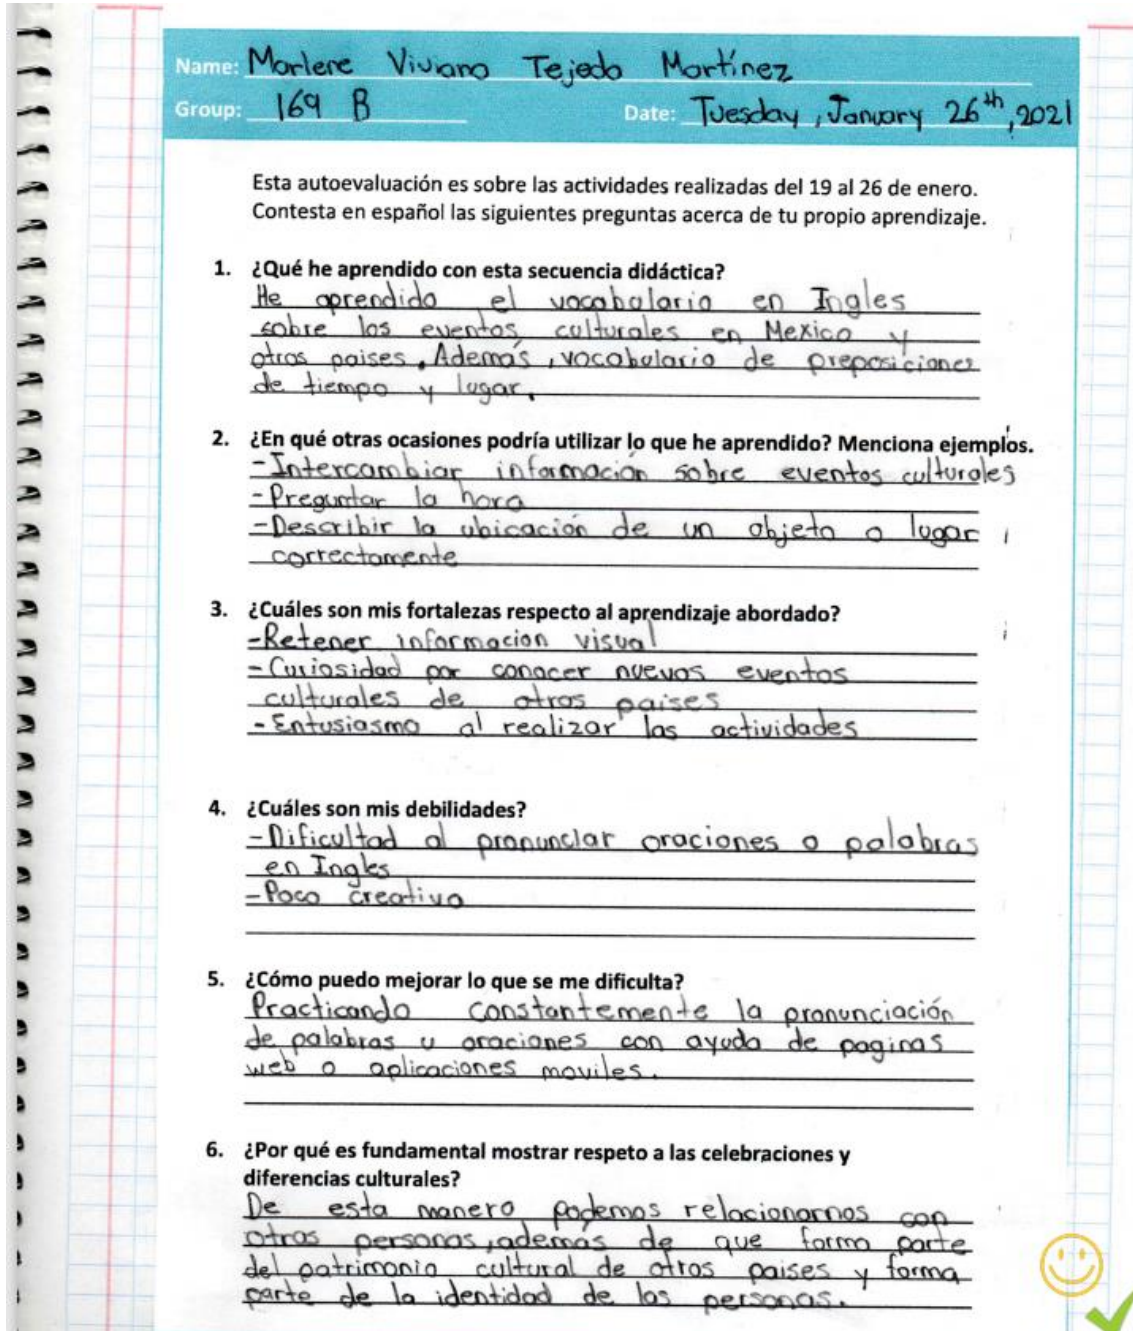 Name: Marlene Viviana Tejeda Martínez
Group: 169 B Date: Tuesday, January 26th, 2021
Esta autoevaluación es sobre las actividades realizadas del 19 al 26 de enero.
Contesta en español las siguientes preguntas acerca de tu propio aprendizaje.
1. ¿Qué he aprendido con esta secuencia didáctica?
He aprendido el vocabulario en Ingles
sobre los eventos culturales en Mexico y
otros paises. Además, vocabulario de preposiciones
de tiempo y lugar.
2. ¿En qué otras ocasiones podría utilizar lo que he aprendido? Menciona ejemplos.
-Intercambiar información sobre eventos culturales
-Preguntar la hora
-Describir la ubicación de un objeto o lugar
correctamente
3. ¿Cuáles son mis fortalezas respecto al aprendizaje abordado?
-Retener informacion visual
-Curiosidad por conocer nuevos eventos
culturales de otros paises
-Entusiasmo al realizar las actividades
4. ¿Cuáles son mis debilidades?
-Dificultad al pronunciar oraciones o palabras
en Ingles
-Poco creativa
5. ¿Cómo puedo mejorar lo que se me dificulta?
Practicando constantemente la pronunciación
de palabras u oraciones con ayuda de paginas
web o aplicaciones moviles.
6. ¿Por qué es fundamental mostrar respeto a las celebraciones y
diferencias culturales?
De esta manera podemos relacionarnos con
otras personas, además de que forma parte
del patrimonio cultural de otros paises y forma
parte de la identidad de las personas.